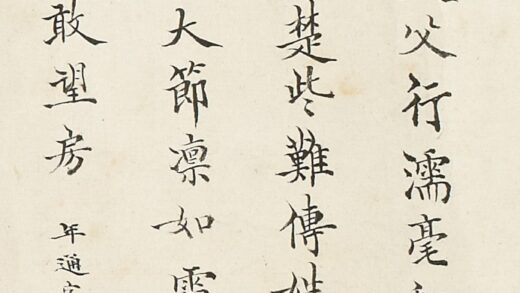 父行濡毫
楚些難傳
大節凛如
敢望房
年通